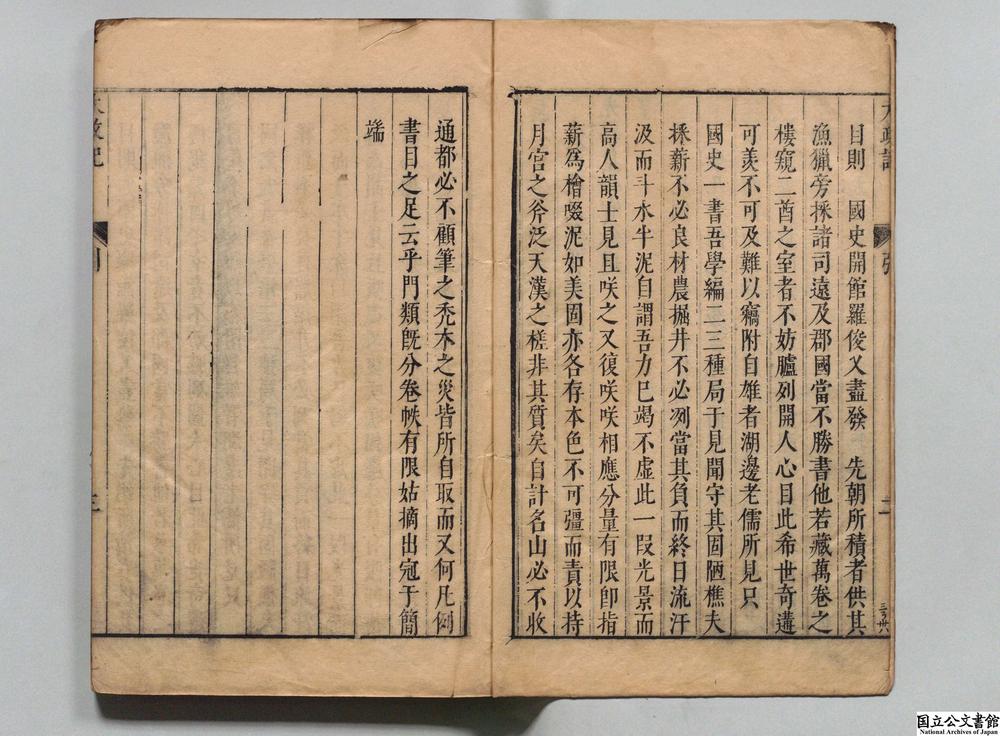 目則　國史開館羅俊乂盡發　先朝所積者供其
漁獵旁採諸司遠及郡國當不勝書他若藏萬卷之
樓窺二酋之室者不妨臚列開人心目此希世奇遘
可羨不可及難以竊附自雄者湖邊老儒所見只
國史一書吾學編二三種局于見聞守其固陋樵夫
採薪不必良材農掘井不必冽當其負而終日流汗
汲而斗水半泥自謂吾力已竭不虛此一段光景而
高人韻士見且咲之又復咲咲相應分量有限卽指
薪爲檜啜泥如美固亦各存本色不可彊而責以持
月宮之斧泛天漢之槎非其質矣自計名山必不收
通都必不顧筆之禿木之災皆所自取而又何凡例
書目之足云乎門類旣分卷帙有限姑摘出冠于簡
端
大政記
國立公文書館
National Archives of Japan